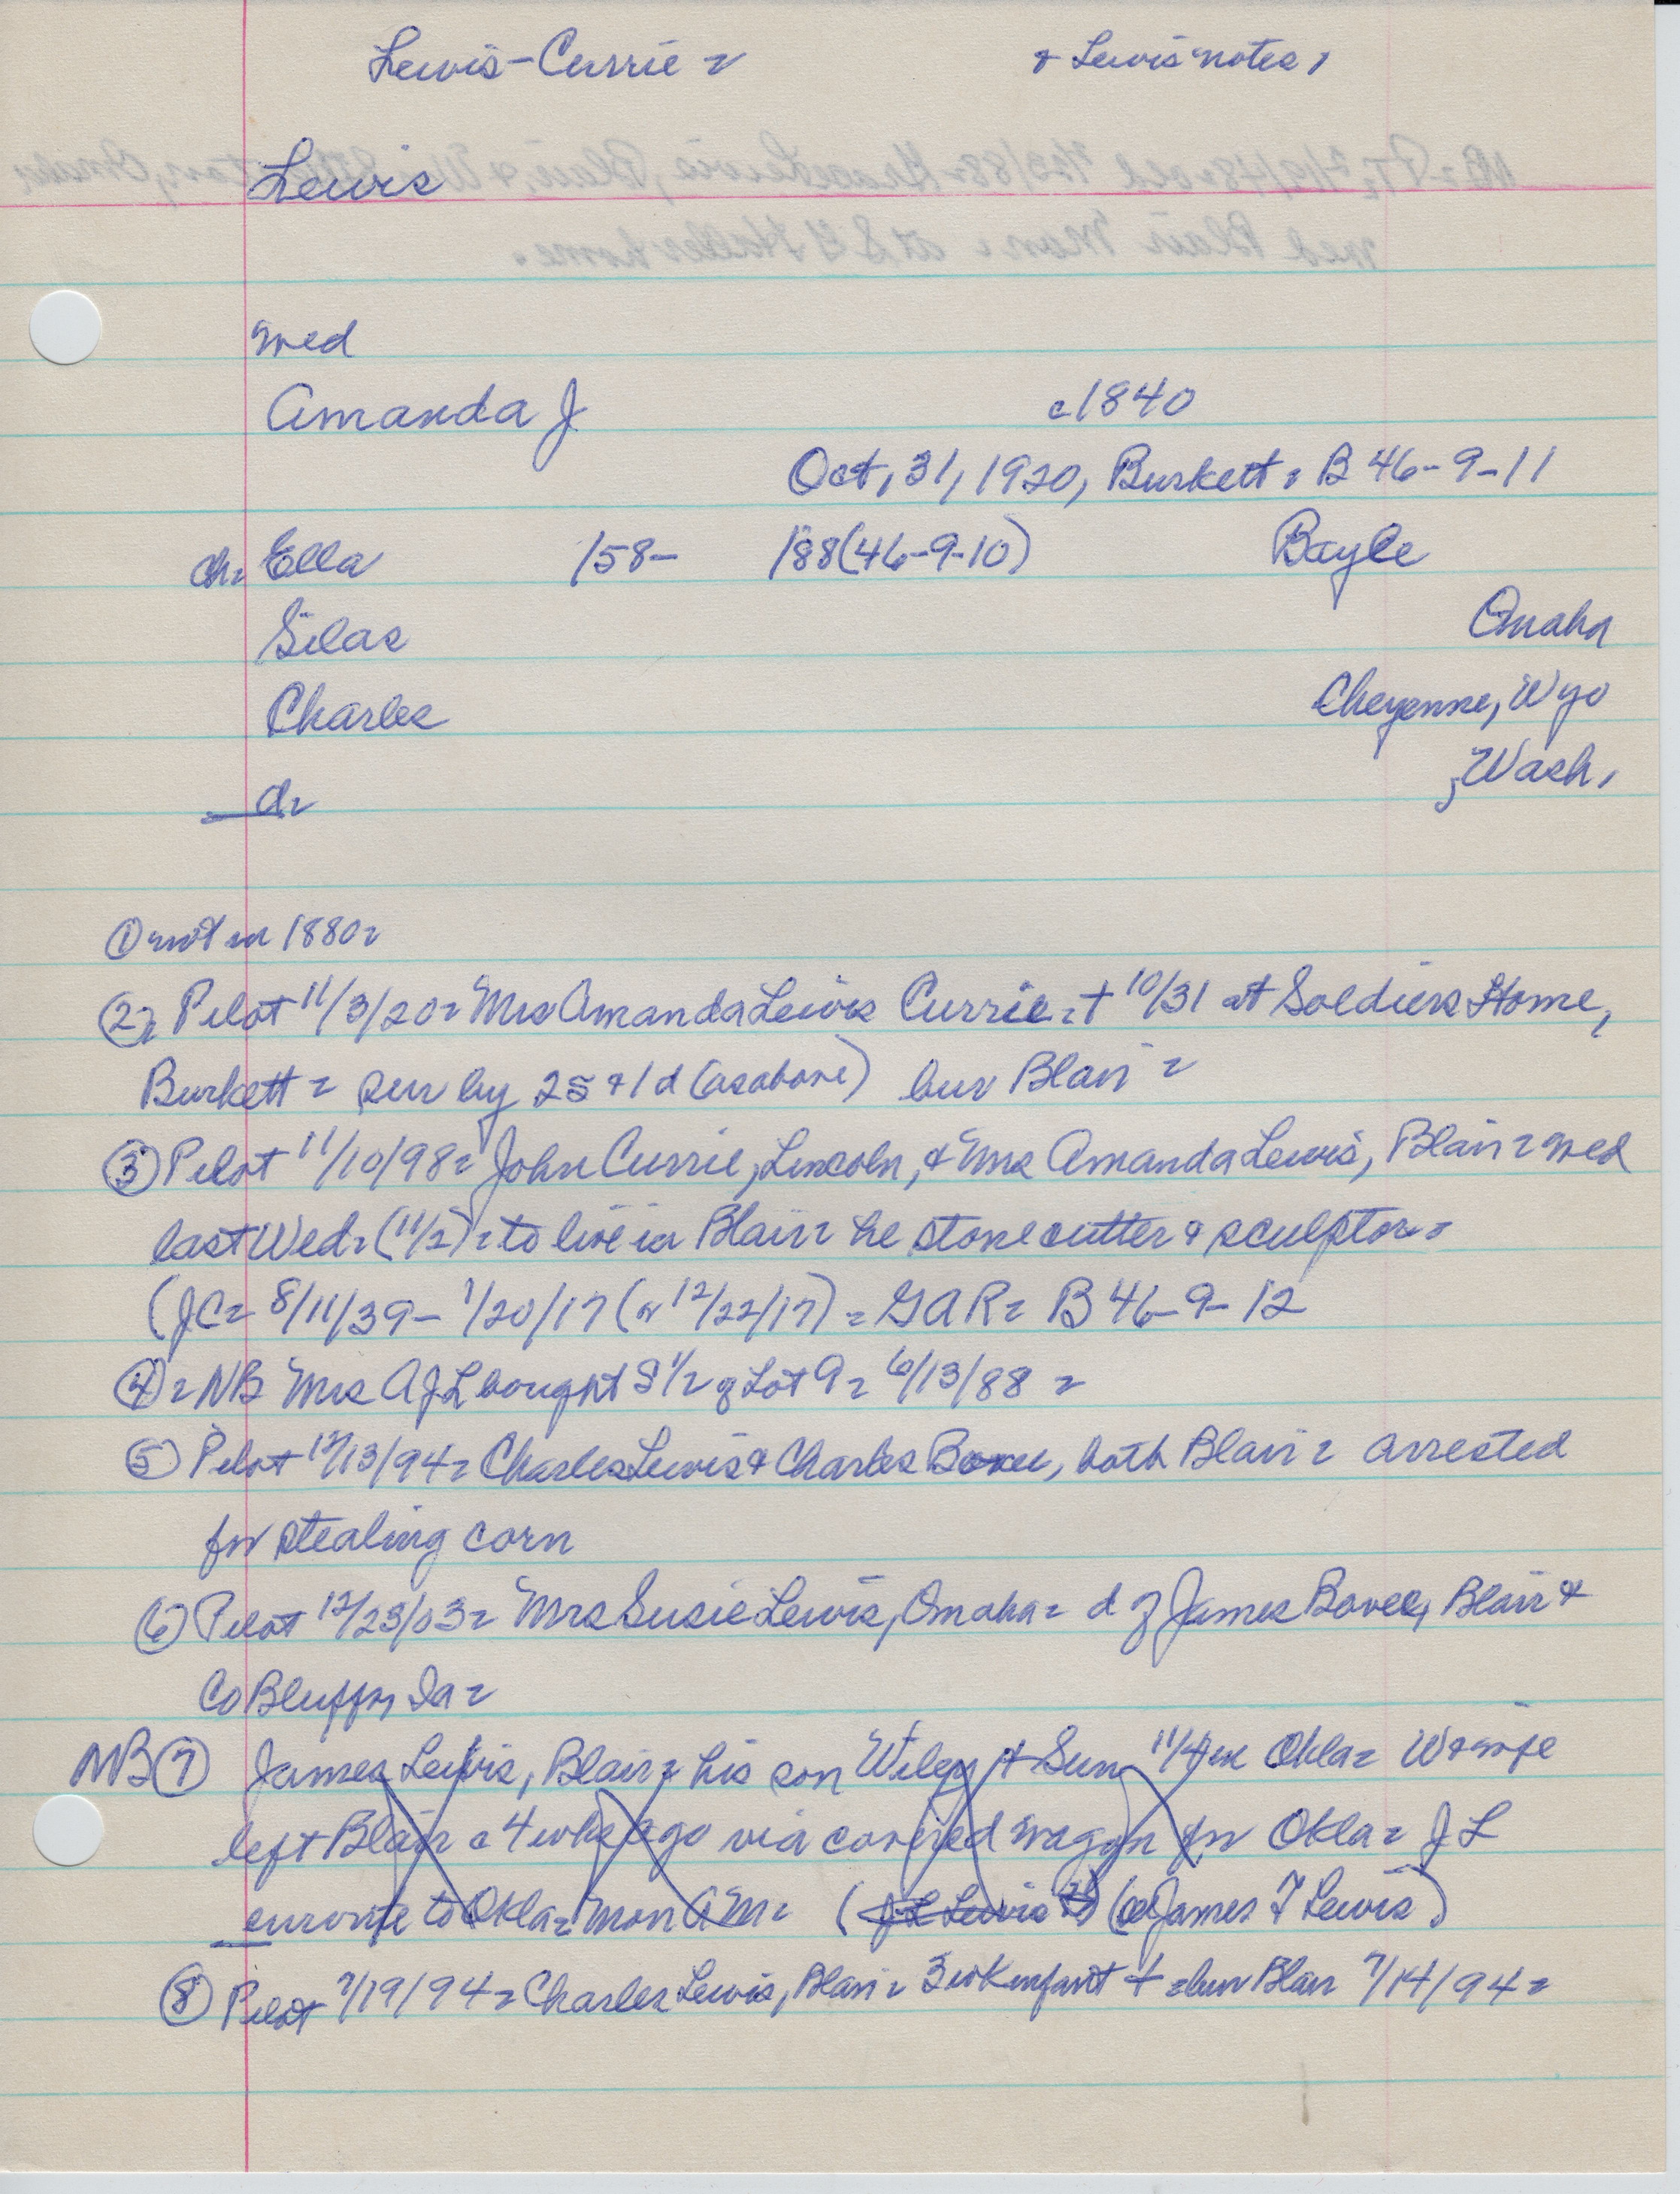 Lewis-Currie = & Lewis notes,
Lewis
med
Amanda J c1840
Oct, 31, 1920, Burkett, B 46-9-11
ch= Ella /58- /88(46-9-10) Bayle
Silas Omaha
Charles Cheyenne, Wyo
d= , Wash,
① not in 1880=
②= Pilot 11/3/20= Mrs Amanda Lewis Currie = + 10/31 at Soldiers Home,
Burkett = sur by 2s + 1d (as above) bur Blair =
③ Pilot 11/10/98= John Currie, Lincoln, & Mrs Amanda Lewis, Blair = med
last Wed= (11/2) = to live in Blair = he stone cutter & sculptor =
(JC= 8/11/39- 1/20/17 (or 12/22/17) = GAR= B 46-9-12
④= NB Mrs AJL bought S 1/2 of Lot 9= 6/13/88 =
⑤ Pilot 12/13/94= Charles Lewis & Charles , both Blair = arrested
for stealing corn
⑥ Pilot 12/23/03= Mrs Susie Lewis, Omaha= d of James Bovee, Blair &
Co Bluffs, Ia =
NB ⑦ James Lewis, Blair = his son Wiley + Sun 11/4 in Okla= W & wife
left Blair c 4 wks ago via covered wagon for Okla= JL
enroute to Okla= Mon AM= (J L Lewis (James T Lewis)
⑧ Pilot 7/19/94= Charles Lewis, Blair = 3 wk infant + = bur Blair 7/14/94=